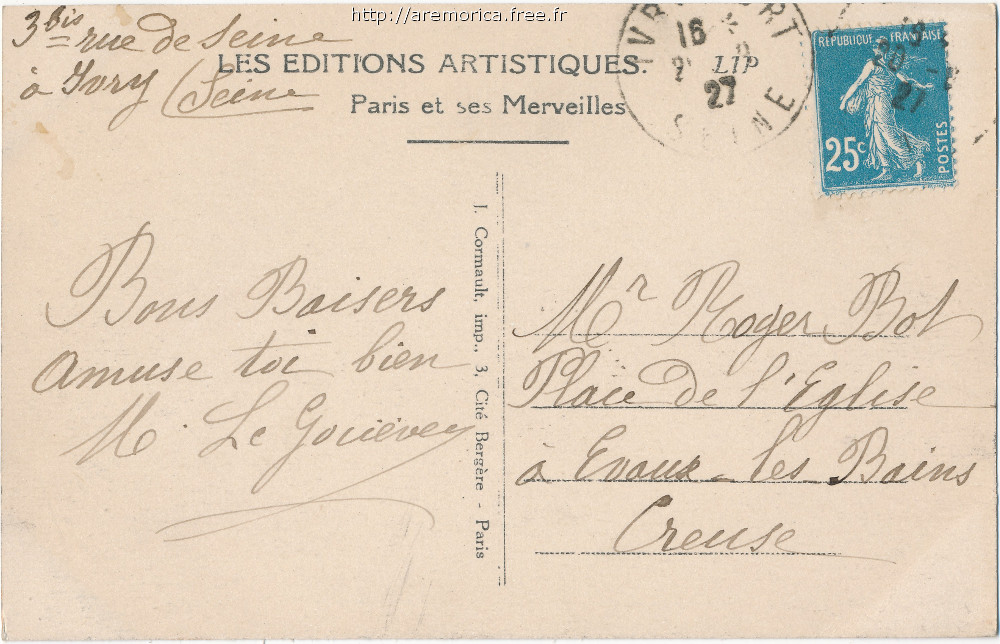 http://aremorica.free.fr
3bis rue de Seine
à Ivry (Seine)
LES EDITIONS ARTISTIQUES. LIP
Paris et ses Merveilles
IVRY PORT
SEINE
16
27
REPUBLIQUE FRANÇAISE
25c
POSTES
27
J. Cormault, imp., 3, Cité Bergère - Paris
Bons Baisers
amuse toi bien
M. Le
Mr Roger Bot
Place de l'Eglise
à Evaux-les Bains
Creuse